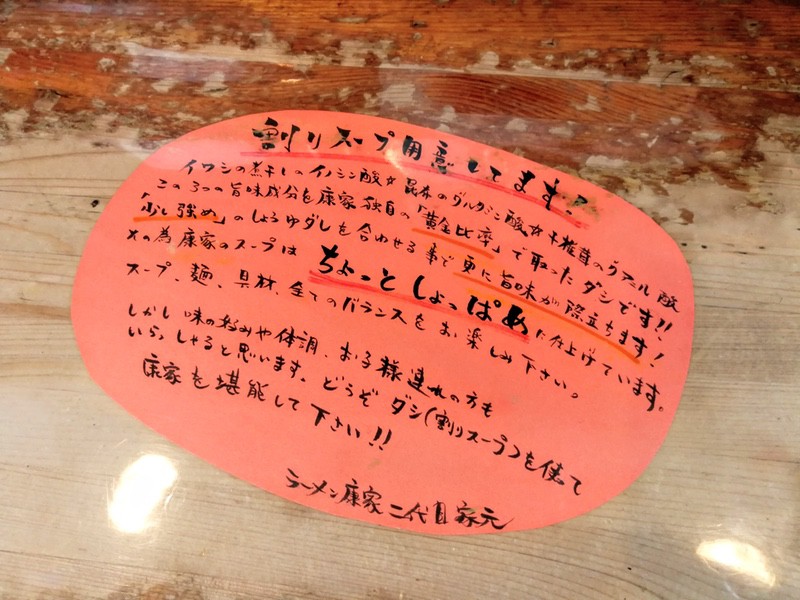 割りスープ用意してます?
イワシの煮干しのイノシン酸や昆布のグルタミン酸や干椎茸のグアニル酸
この3つの旨味成分を康家独自の「黄金比率」で取ったダシです!!
「少し強め」のしょうゆダレを合わせる事で更に旨味が際立ちます!
その為康家のスープは ちょっとしょっぱめ に仕上げています。
スープ、麺、具材、全てのバランスをお楽しみ下さい。
しかし味の好みや体調、お子様連れの方も
いらっしゃると思います。どうぞ ダシ(割りスープ)を使って
康家を堪能して下さい!!
ラーメン康家 二代目家元